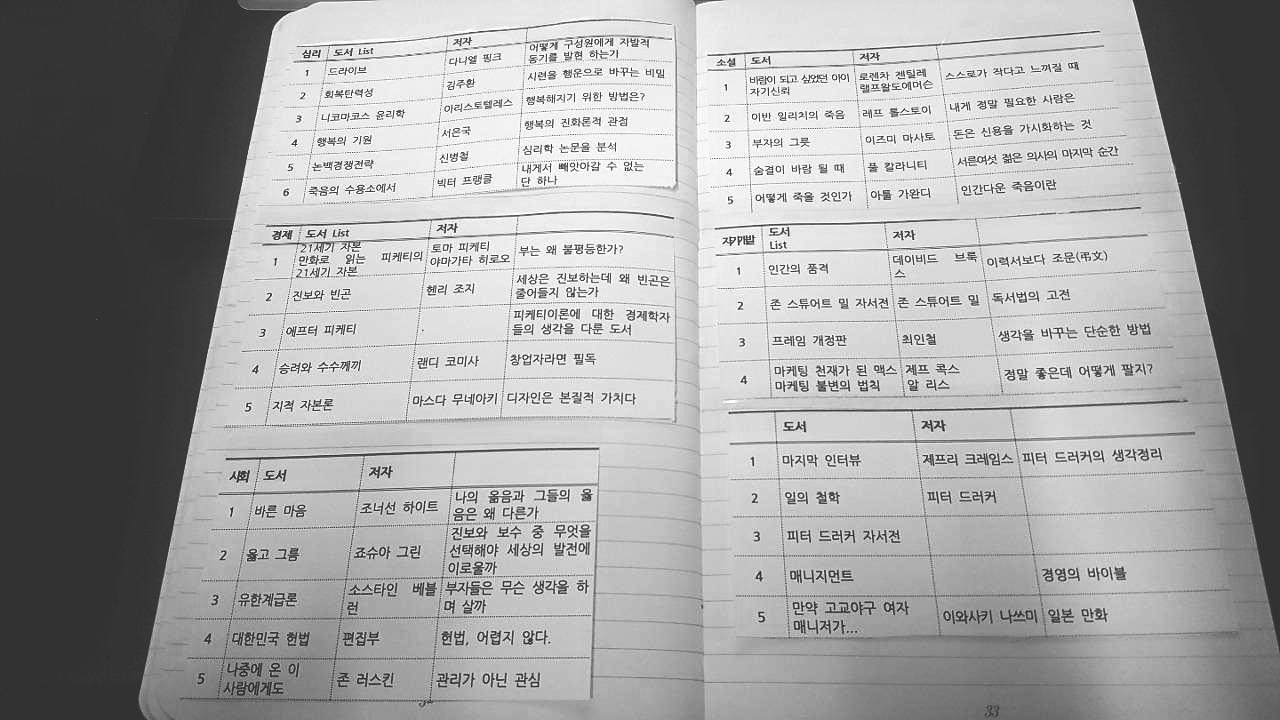 심리 도서 List 저자
1 드라이브 다니엘 핑크 어떻게 구성원에게 자발적
동기를 발현 하는가
2 회복탄력성 김주환 시련을 행운으로 바꾸는 비밀
3 니코마코스 윤리학 아리스토텔레스 행복해지기 위한 방법은?
4 행복의 기원 서은국 행복의 진화론적 관점
5 논백경쟁전략 신병철 심리학 논문을 분석
6 죽음의 수용소에서 빅터 프랭클 내게서 빼앗아갈 수 없는
단 하나
경제 도서 List 저자
1 21세기 자본 토마 피케티 부는 왜 불평등한가?
만화로 읽는 피케티의 야마가타 히로오
21세기 자본
2 진보와 빈곤 헨리 조지 세상은 진보하는데 왜 빈곤은
줄어들지 않는가
3 애프터 피케티 . 피케티이론에 대한 경제학자
들의 생각을 다룬 도서
4 승려와 수수께끼 랜디 코미사 창업자라면 필독
5 지적 자본론 마스다 무네아키 디자인은 본질적 가치다
사회 도서 저자
1 바른 마음 조너선 하이트 나의 옳음과 그들의 옳
음은 왜 다른가
2 옳고 그름 죠슈아 그린 진보와 보수 중 무엇을
선택해야 세상의 발전에
이로울까
3 유한계급론 소스타인 베블 부자들은 무슨 생각을 하
런 며 살까
4 대한민국 헌법 편집부 헌법, 어렵지 않다.
5 나중에 온 이 존 러스킨 관리가 아닌 관심
사람에게도
소설 도서 저자
1 바람이 되고 싶었던 아이 로렌차 젠틸레 스스로가 작다고 느껴질 때
자기신뢰 랠프왈도에머슨
2 이반 일리치의 죽음 레프 톨스토이 내게 정말 필요한 사람은
3 부자의 그릇 이즈미 마사토 돈은 신용을 가시화하는 것
4 숨결이 바람 될 때 폴 칼라니티 서른여섯 젊은 의사의 마지막 순간
5 어떻게 죽을 것인가 아툴 가완디 인간다운 죽음이란
자기개발 도서 저자
List
1 인간의 품격 데이비드 브룩 이력서보다 조문(弔文)
스
2 존 스튜어트 밀 자서전 존 스튜어트 밀 독서법의 고전
3 프레임 개정판 최인철 생각을 바꾸는 단순한 방법
4 마케팅 천재가 된 맥스 제프 콕스 정말 좋은데 어떻게 팔지?
마케팅 불변의 법칙 알 리스
도서 저자
1 마지막 인터뷰 제프리 크레임스 피터 드러커의 생각정리
2 일의 철학 피터 드러커
3 피터 드러커 자서전
4 매니지먼트 경영의 바이블
5 만약 고교야구 여자 이와사키 나쓰미 일본 만화
매니저가...
33